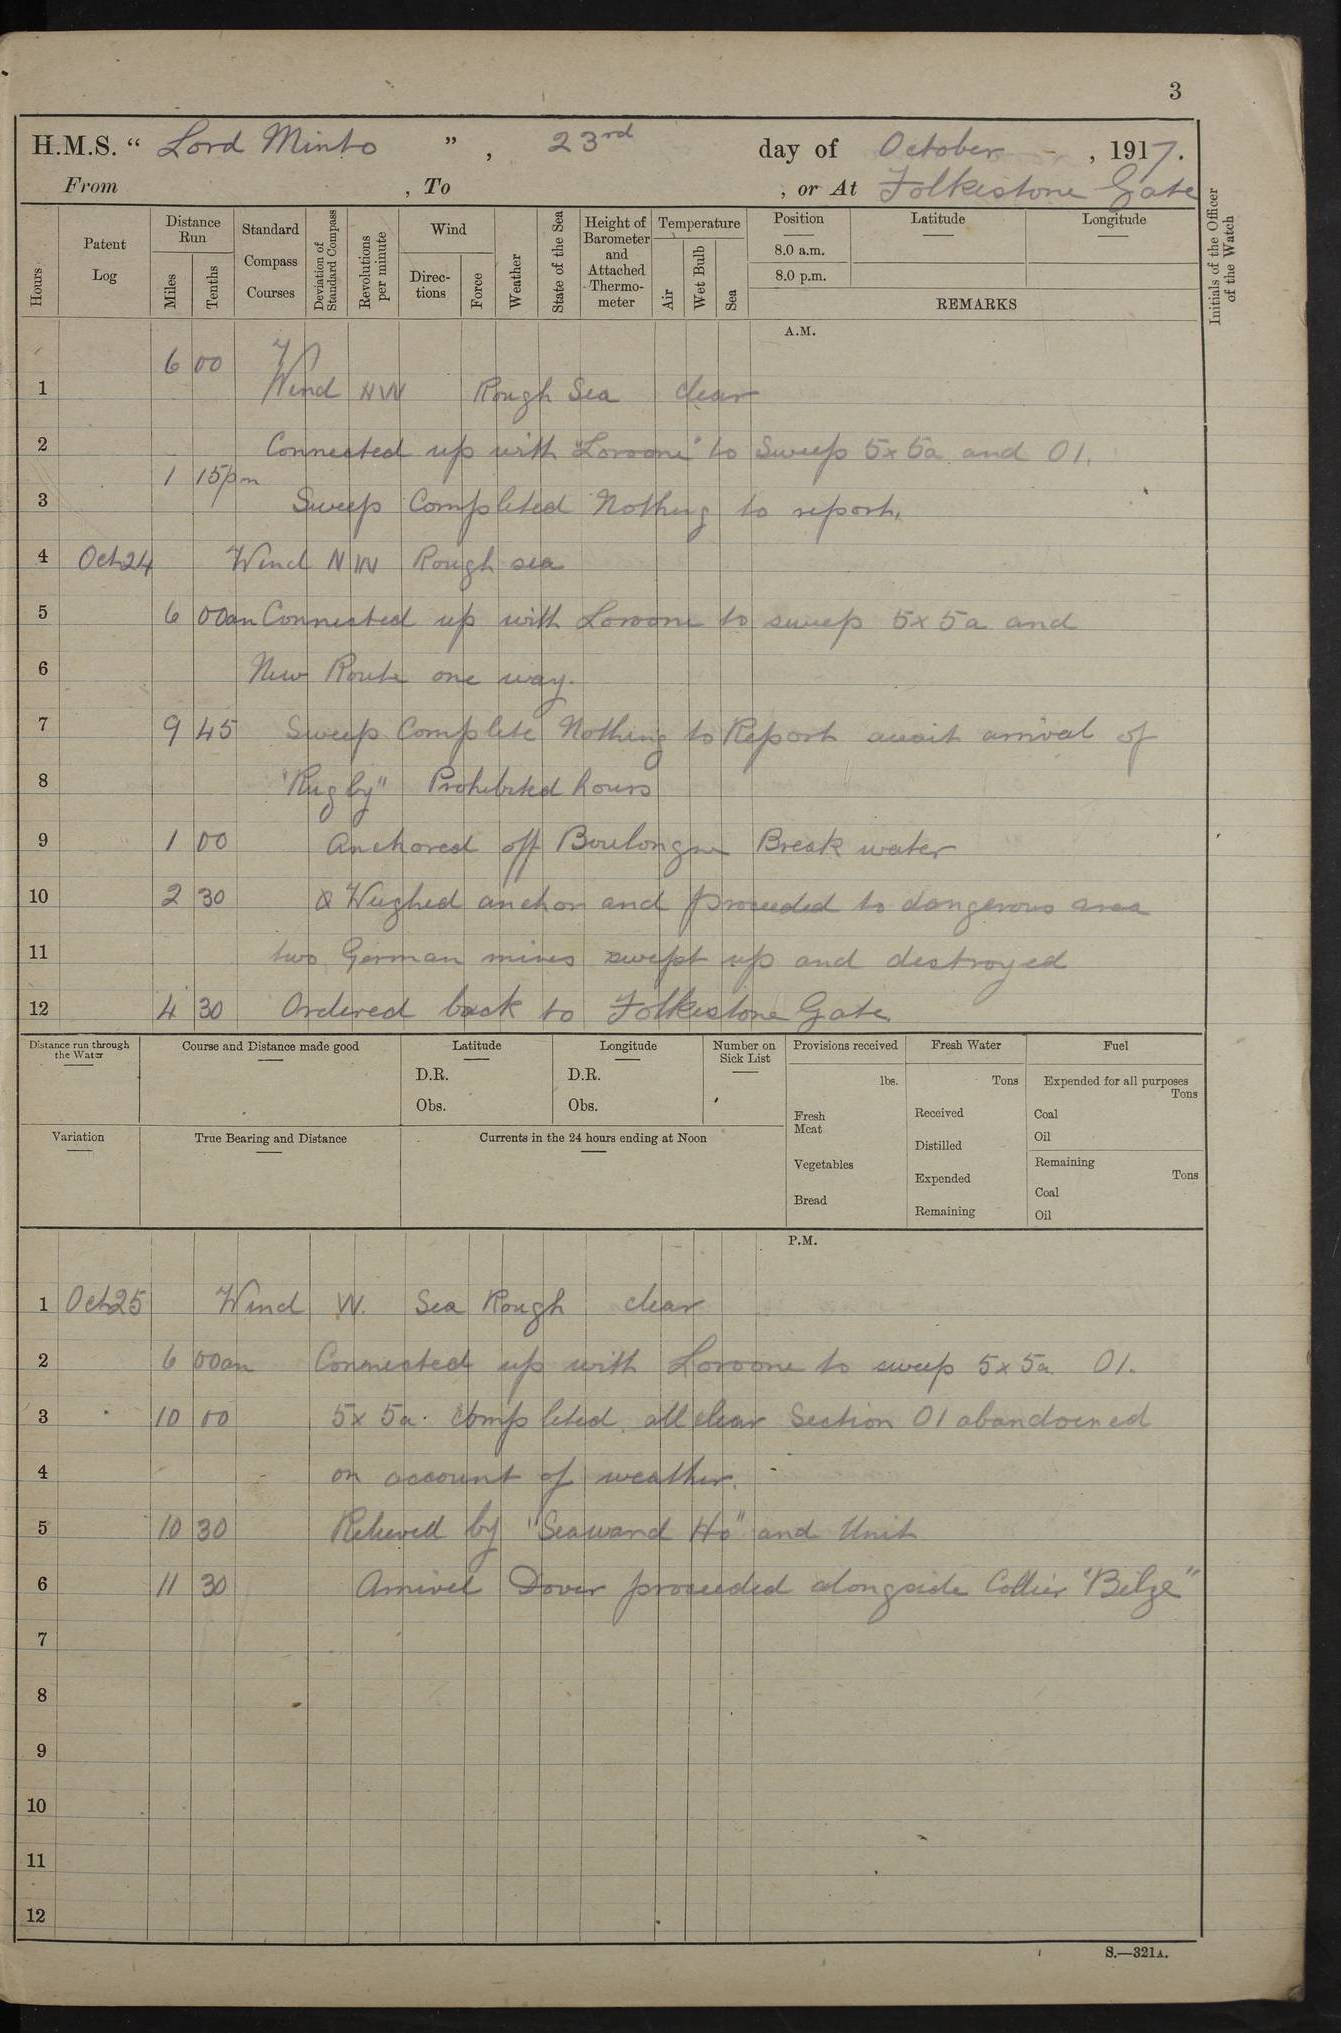 3
H.M.S. “ Lord Minto ” , 23rd day of October , 1917.
From , To , or At Folkestone Gate
Hours
Patent Log
Distance Run
Miles
Tenths
Standard Compass Courses
Deviation of Standard Compass
Revolutions per minute
Wind
Directions
Force
Weather
State of the Sea
Height of Barometer and Attached Thermometer
Temperature
Air
Wet Bulb
Sea
Position
8.0 a.m.
8.0 p.m.
Latitude
Longitude
REMARKS
Initials of the Officer of the Watch
A.M.
6 00
1 Wind NW Rough Sea clear
2 Connected up with "Loroone" to Sweep 5x 5a and 01.
1 15pm
3 Sweep Completed Nothing to report.
4 Oct 24 Wind NW Rough sea
5 6 00am Connected up with Loroone to sweep 5x 5a and
6 New Route one way.
7 9 45 Sweep Complete Nothing to Report await arrival of
8 "Rugby" Prohibited hours
9 1 00 Anchored off Boulongne Break water
10 2 30 Weighed anchor and proceeded to dangerous area
11 two German mines swept up and destroyed
12 4 30 Ordered back to Folkestone Gate
Distance run through the Water
Course and Distance made good
Latitude
D.R.
Obs.
Longitude
D.R.
Obs.
Number on Sick List
Provisions received
lbs.
Fresh Meat
Vegetables
Bread
Fresh Water
Tons
Received
Distilled
Expended
Remaining
Fuel
Expended for all purposes
Tons
Coal
Oil
Remaining
Tons
Coal
Oil
Variation
True Bearing and Distance
Currents in the 24 hours ending at Noon
P.M.
1 Oct 25 Wind W. Sea Rough clear
2 6 00am Connected up with Loroone to sweep 5x 5a 01.
3 10 00 5x 5a. completed all clear Section 01 abandoened
4 on account of weather.
5 10 30 Relieved by "Seaward Ho" and Unit
6 11 30 Arrived Dover proceeded alongside Collier "Belge"
7
8
9
10
11
12
S.—321A.